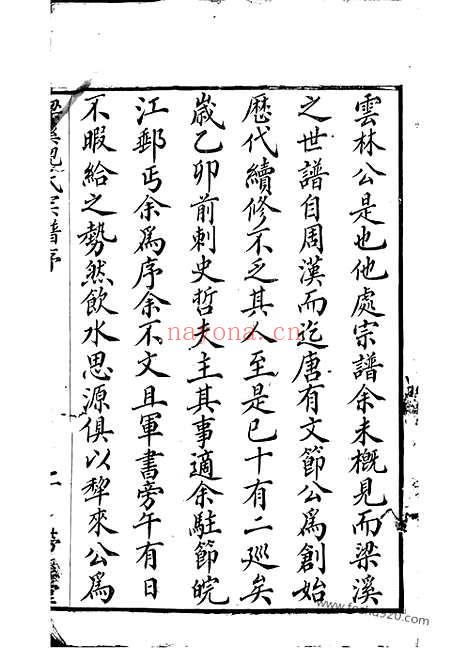 雲林公是也他處宗譜余未概見而梁溪
之世譜自周漢而迄唐有文節公為創始
歷代續修不乏其人至是已十有二巡矣
歲乙卯前刺史哲夫主其事適余駐節皖
江郵丐余為序余不文且軍書旁午有日
不暇給之勢然飲水思源俱以犂來公為
氏宗譜序
nayona.cn
www.fozhu920.com